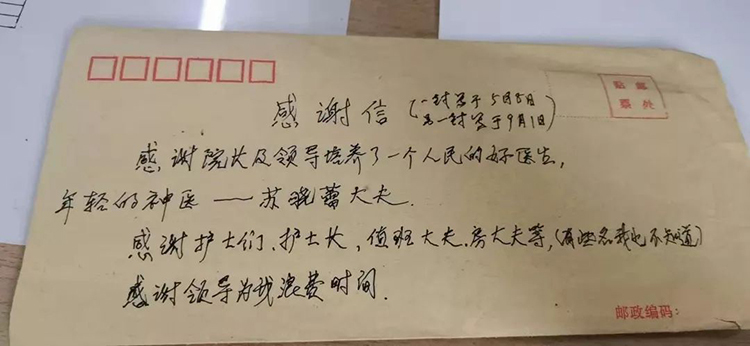 感谢信（一封写于5月5日
另一封写于9月1日）
贴邮
票处
感谢院长及领导培养了一个人民的好医生，
年轻的神医——苏晓蕾大夫.
感谢护士们、护士长，值班大夫、房大夫等，（有些名我也不知道）
感谢领导为我浪费时间.
邮政编码：